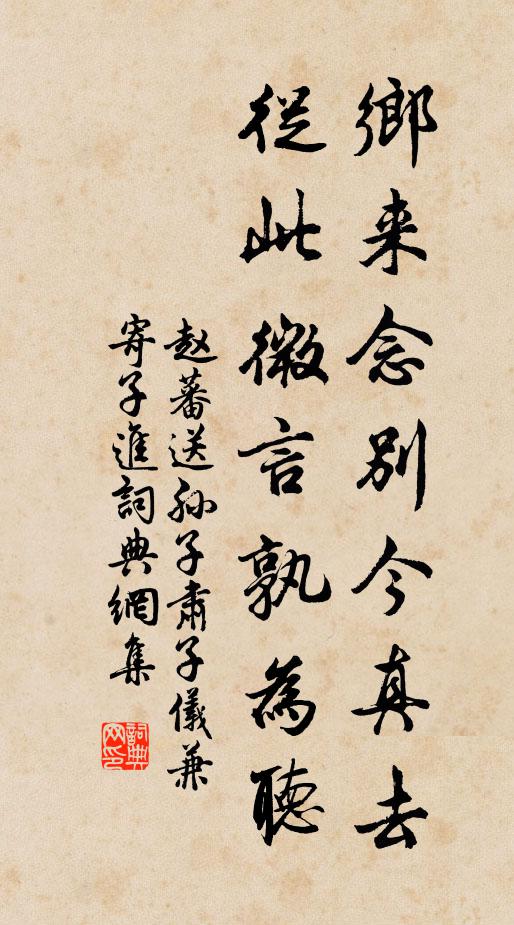 鄉来念別今真去
從此微言孰為聽
赵蕃送孙子肅子儀兼
寄子進詞典網集
詞典网印